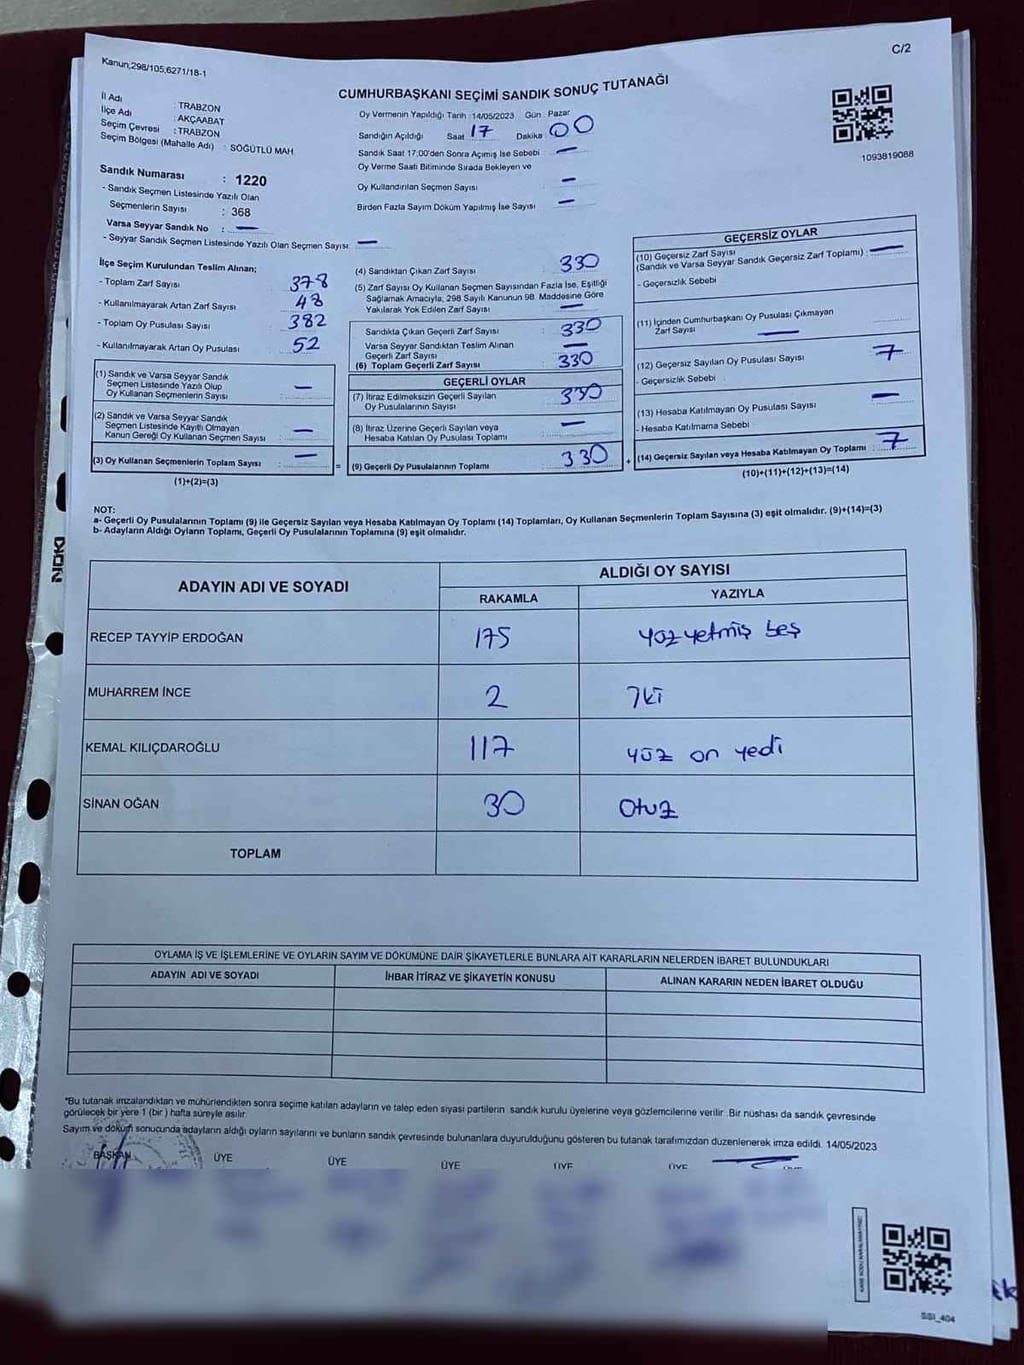 C/2
Kanun;298/105,6271/18-1
CUMHURBAŞKANI SEÇİMİ SANDIK SONUÇ TUTANAĞI
İl Adı : TRABZON
İlçe Adı : AKÇAABAT
Seçim Çevresi : TRABZON
Seçim Bölgesi (Mahalle Adı) : SÖĞÜTLÜ MAH
Oy Vermenin Yapıldığı Tarih 14/05/2023 Gün : Pazar
Sandığın Açıldığı Saat 17 Dakika 00
Sandık Saat 17:00'den Sonra Açımış İse Sebebi —
Oy Verme Saati Bitiminde Sırada Bekleyen ve
Oy Kullandırılan Seçmen Sayısı —
Birden Fazla Sayım Döküm Yapılmış İse Sayısı —
1093819088
Sandık Numarası : 1220
- Sandık Seçmen Listesinde Yazılı Olan
Seçmenlerin Sayısı : 368
Varsa Seyyar Sandık No : —
- Seyyar Sandık Seçmen Listesinde Yazılı Olan Seçmen Sayısı: —
İlçe Seçim Kurulundan Teslim Alınan;
- Toplam Zarf Sayısı : 378
- Kullanılmayarak Artan Zarf Sayısı : 48
- Toplam Oy Pusulası Sayısı : 382
- Kullanılmayarak Artan Oy Pusulası : 52
(1) Sandık ve Varsa Seyyar Sandık
Seçmen Listesinde Yazılı Olup
Oy Kullanan Seçmenlerin Sayısı : —
(2) Sandık ve Varsa Seyyar Sandık
Seçmen Listesinde Kayıtlı Olmayan
Kanun Gereği Oy Kullanan Seçmen Sayısı : —
(3) Oy Kullanan Seçmenlerin Toplam Sayısı : —
(1)+(2)=(3)
=
(4) Sandıktan Çıkan Zarf Sayısı : 330
(5) Zarf Sayısı Oy Kullanan Seçmen Sayısından Fazla İse, Eşitliği
Sağlamak Amacıyla, 298 Sayılı Kanunun 98. Maddesine Göre
Yakılarak Yok Edilen Zarf Sayısı : —
Sandıkta Çıkan Geçerli Zarf Sayısı : 330
Varsa Seyyar Sandıktan Teslim Alınan
Geçerli Zarf Sayısı : —
(6) Toplam Geçerli Zarf Sayısı : 330
GEÇERLİ OYLAR
(7) İtiraz Edilmeksizin Geçerli Sayılan
Oy Pusulalarının Sayısı : 330
(8) İtiraz Üzerine Geçerli Sayılan veya
Hesaba Katılan Oy Pusulası Toplamı : —
(9) Geçerli Oy Pusulalarının Toplamı : 330
+
GEÇERSİZ OYLAR
(10) Geçersiz Zarf Sayısı
(Sandık ve Varsa Seyyar Sandık Geçersiz Zarf Toplamı) : —
- Geçersizlik Sebebi
(11) İçinden Cumhurbaşkanı Oy Pusulası Çıkmayan
Zarf Sayısı —
(12) Geçersiz Sayılan Oy Pusulası Sayısı : 7
- Geçersizlik Sebebi
(13) Hesaba Katılmayan Oy Pusulası Sayısı : —
- Hesaba Katılmama Sebebi
(14) Geçersiz Sayılan veya Hesaba Katılmayan Oy Toplamı : 7
(10)+(11)+(12)+(13)=(14)
NOT:
a- Geçerli Oy Pusulalarının Toplamı (9) ile Geçersiz Sayılan veya Hesaba Katılmayan Oy Toplamı (14) Toplamları, Oy Kullanan Seçmenlerin Toplam Sayısına (3) eşit olmalıdır. (9)+(14)=(3)
b- Adayların Aldığı Oyların Toplamı, Geçerli Oy Pusulalarının Toplamına (9) eşit olmalıdır.
NOKI
ADAYIN ADI VE SOYADI
ALDIĞI OY SAYISI
RAKAMLA YAZIYLA
RECEP TAYYİP ERDOĞAN 175 yüz yetmiş beş
MUHARREM İNCE 2 İki
KEMAL KILIÇDAROĞLU 117 yüz on yedi
SİNAN OĞAN 30 Otuz
TOPLAM
OYLAMA İŞ VE İŞLEMLERİNE VE OYLARIN SAYIM VE DÖKÜMÜNE DAİR ŞİKAYETLERLE BUNLARA AİT KARARLARIN NELERDEN İBARET BULUNDUKLARI
ADAYIN ADI VE SOYADI İHBAR İTİRAZ VE ŞİKAYETİN KONUSU ALINAN KARARIN NEDEN İBARET OLDUĞU
*Bu tutanak imzalandıktan ve mühürlendikten sonra seçime katılan adayların ve talep eden siyasi partilerin sandık kurulu üyelerine veya gözlemcilerine verilir. Bir nüshası da sandık çevresinde
görülecek bir yere 1 (bir) hafta süreyle asılır.
Sayım ve döküm sonucunda adayların aldığı oyların sayılarını ve bunların sandık çevresinde bulunanlara duyurulduğunu gösteren bu tutanak tarafımızdan düzenlenerek imza edildi. 14/05/2023
BAŞKAN ÜYE ÜYE ÜYE ÜYE ÜYE
SSI_404